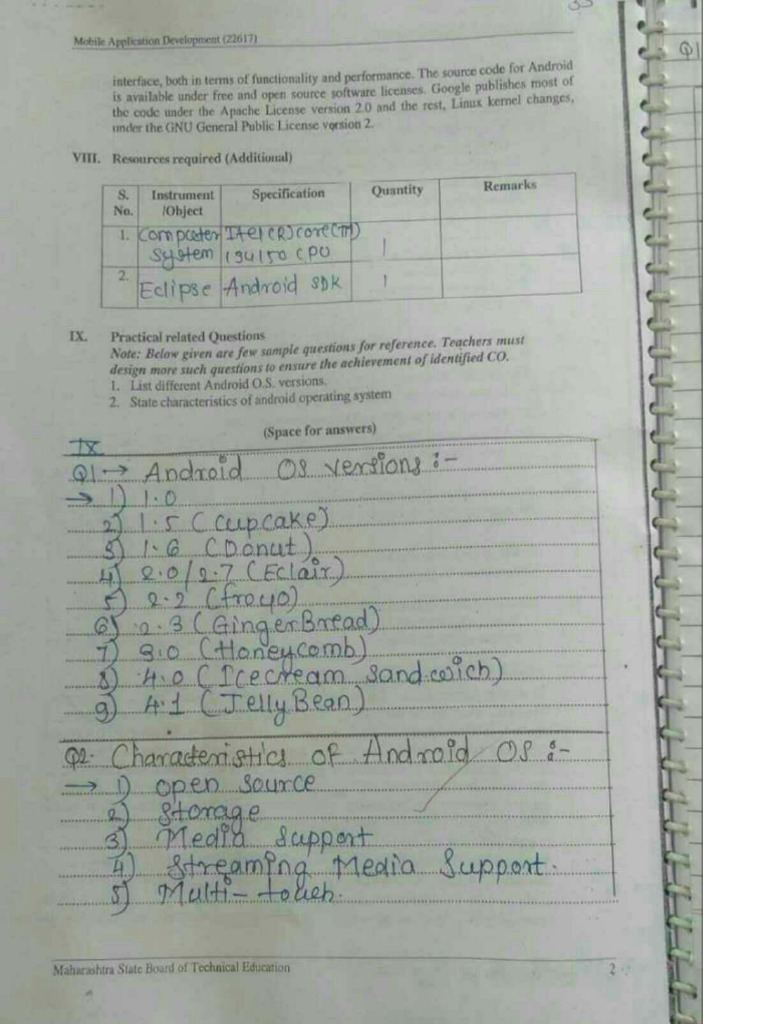 Mobile Application Development (22617)
interface, both in terms of functionality and performance. The source code for Android
is available under free and open source software licenses. Google publishes most of
the code under the Apache License version 2.0 and the rest, Linux kernel changes,
under the GNU General Public License version 2.
VIII. Resources required (Additional)
S. No. Instrument /Object Specification Quantity Remarks
1. Computer System Itel(R)core(TM) i34150 CPU 1
2. Eclipse Android SDK 1
IX. Practical related Questions
Note: Below given are few sample questions for reference. Teachers must
design more such questions to ensure the achievement of identified CO.
1. List different Android O.S. versions.
2. State characteristics of android operating system
(Space for answers)
IX
Q1→ Android OS versions :-
→ 1) 1.0
2) 1.5 (cupcake)
3) 1.6 (Donut)
4) 2.0/2.7 (Eclair)
5) 2.2 (froyo)
6) 2.3 (GingerBread)
7) 3.0 (Honeycomb)
8) 4.0 (Icecream Sandwich)
9) 4.1 (JellyBean)
Q2. Characteristics of Android OS :-
→ 1) open source
2) Storage
3) Media Support
4) Streaming Media Support.
5) Multi-touch.
Maharashtra State Board of Technical Education 2
Q1